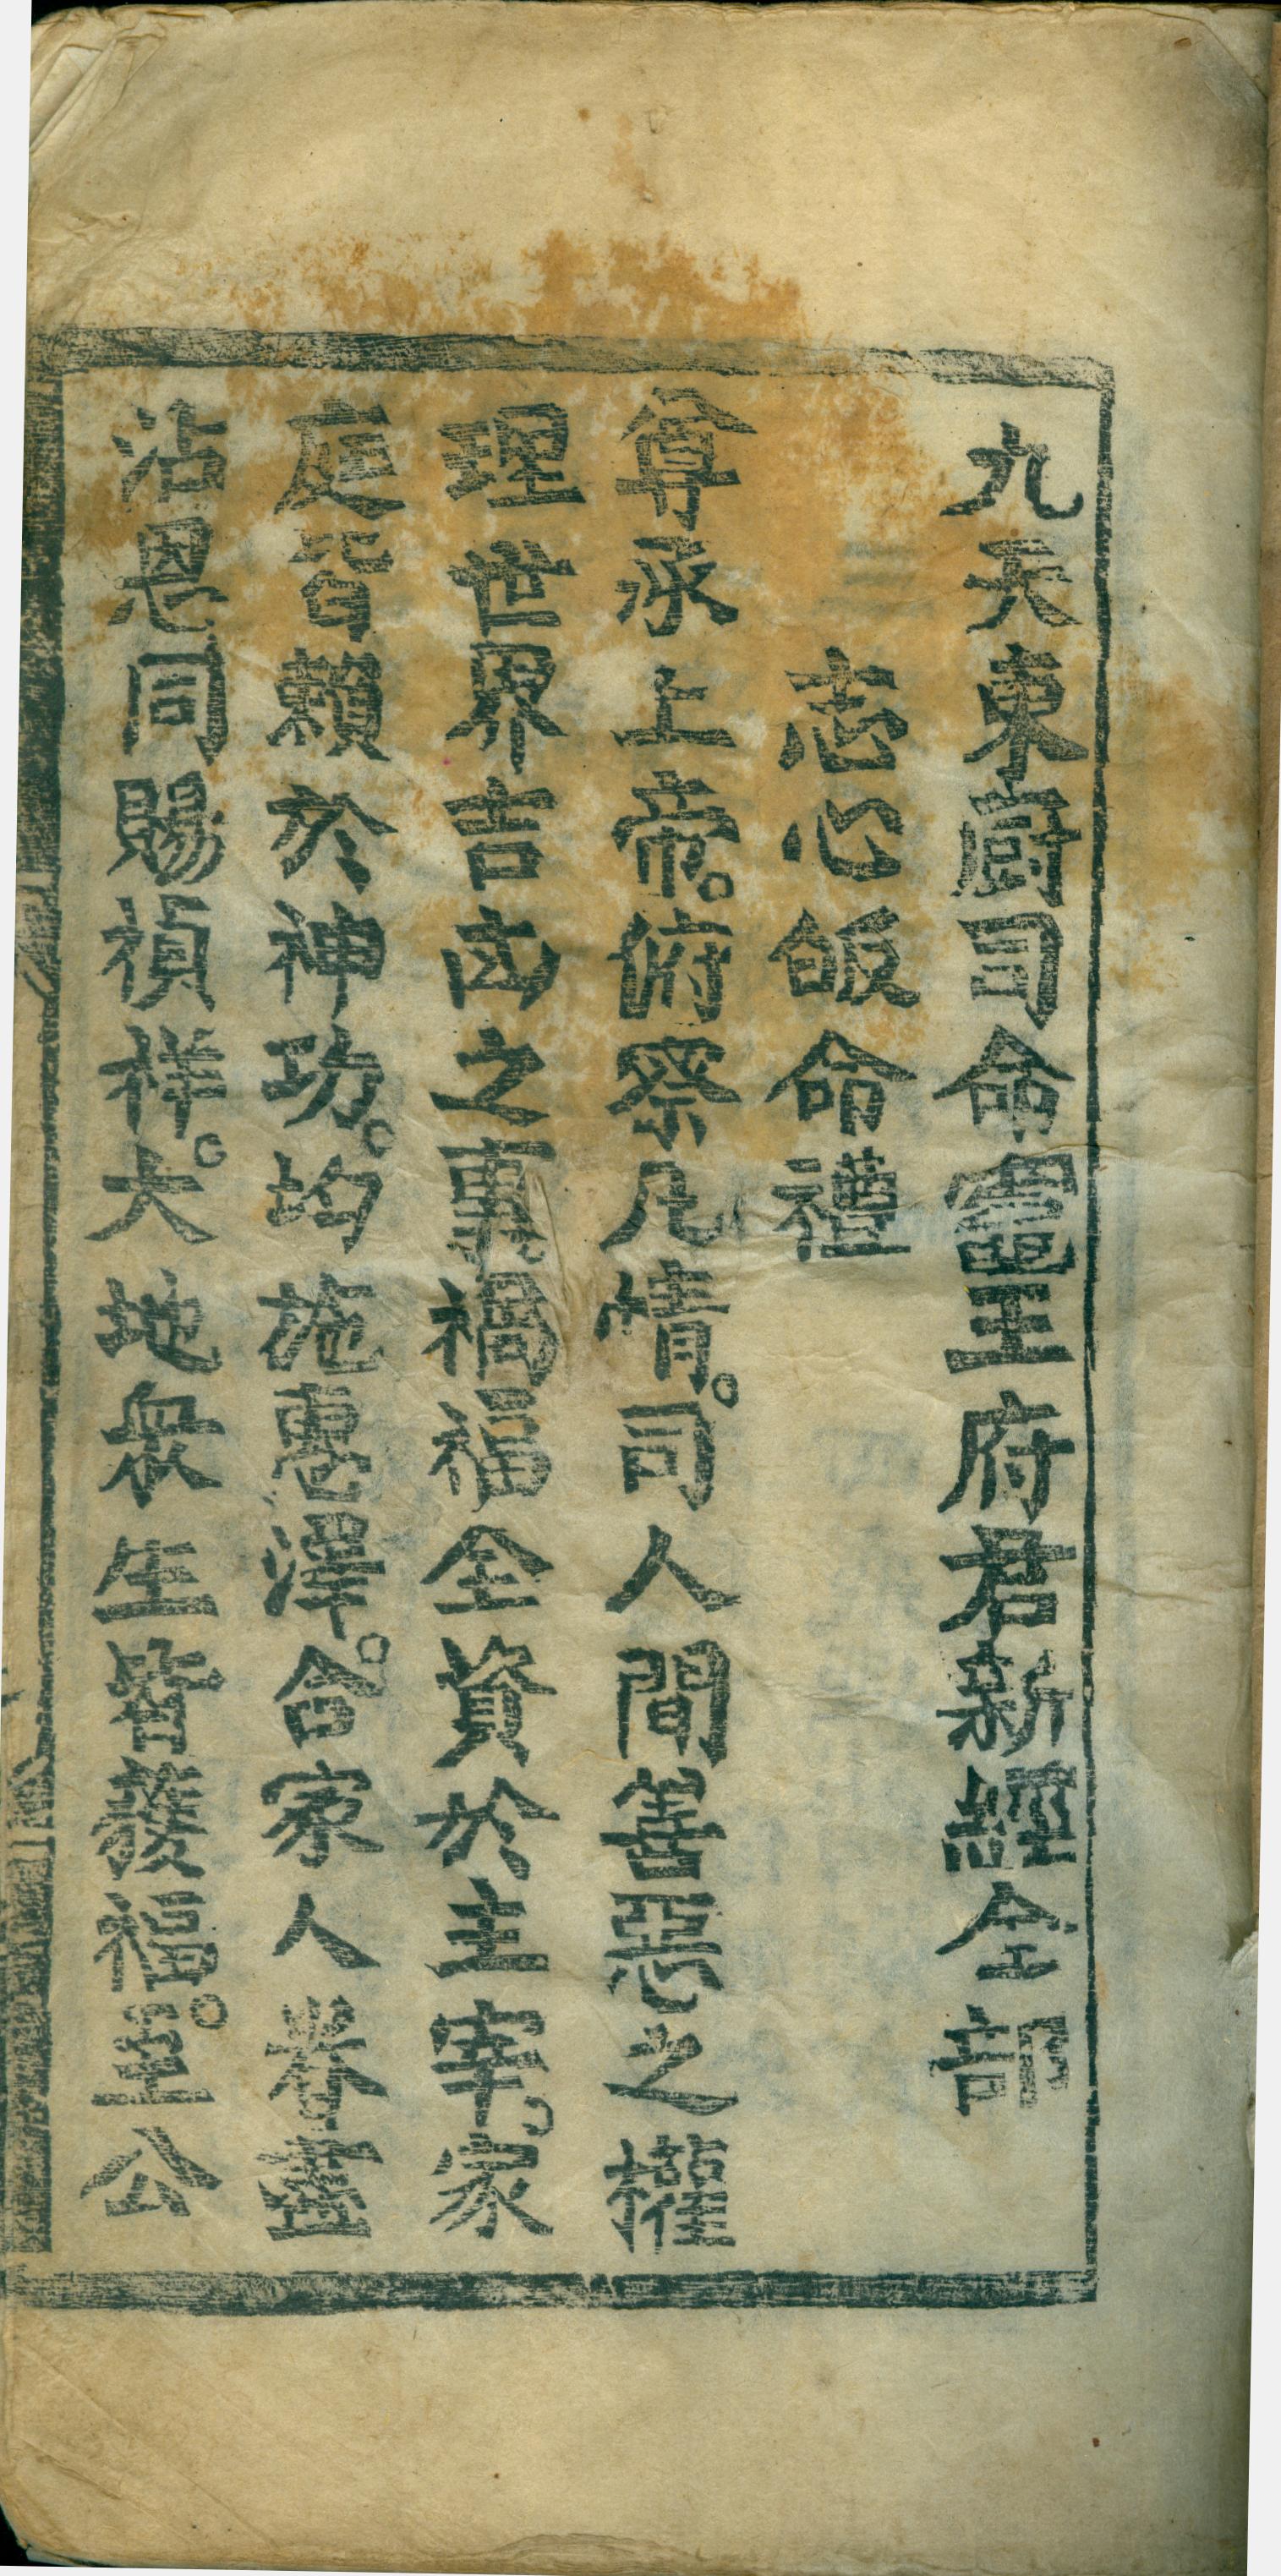 九天東廚司命竈王府君新經全部
志心皈命禮
尊承上帝。俯察凡情。司人間善惡之權
理世界吉凶之事禍福全資於主宰。家
庭皆賴於神功。均施惠澤。合家人眷盡
沾恩同賜禎祥。大地衆生皆發福。至公